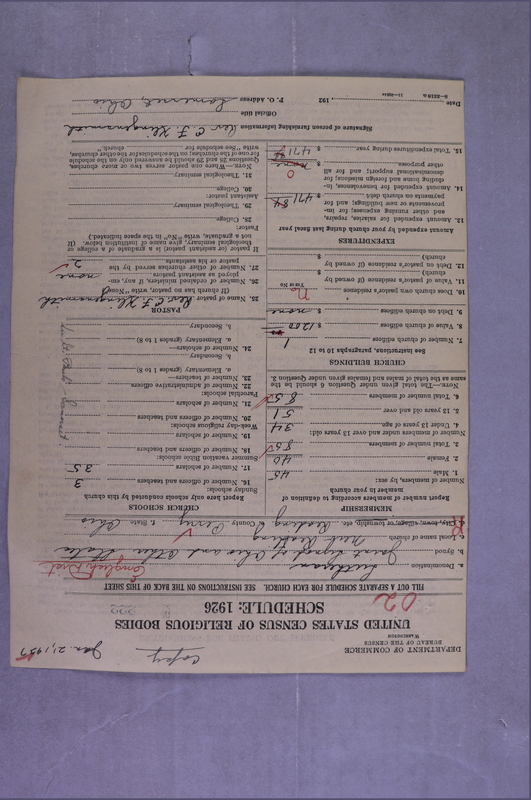 DEPARTMENT OF COMMERCE
BUREAU OF THE CENSUS
WASHINGTON
Copy
Jan. 21, 1927
UNITED STATES CENSUS OF RELIGIOUS BODIES
SCHEDULE: 1926
02
FILL OUT A SEPARATE SCHEDULE FOR EACH CHURCH. SEE INSTRUCTIONS ON THE BACK OF THIS SHEET
a. Denomination Lutheran English Dist
b. Synod Joint Synod of Ohio and Other States
c. Local name of church New Reading
City, town, village, or township, etc. Reading County Perry State Ohio
MEMBERSHIP
Report number of members according to definition of member in your church
Number of members, by sex:
1. Male 45
2. Female 40
3. Total number of members 85
Number of members under and over 13 years old:
4. Under 13 years of age 34
5. 13 years old and over 51
6. Total number of members 85
NOTE.—The total given under Question 6 should be the same as the total of males and females given under Question 3.
CHURCH BUILDINGS
See Instructions, paragraphs 10 to 12
7. Number of church edifices 1
8. Value of church edifices $ 1200
9. Debt on church edifices $ none
10. Does church own pastor's residence No
Yes or No
11. Value of pastor's residence (if owned by church) $
12. Debt on pastor's residence (if owned by church) $
EXPENDITURES
Amount expended by your church during last fiscal year
13. Amount expended for salaries, repairs, and other running expenses; for improvements or new buildings; and for payments on church debt $ 471.84
14. Amount expended for benevolences, including home and foreign missions; for denominational support; and for all other purposes $ none 0
15. Total expenditures during year $ 471.84
CHURCH SCHOOLS
Report here only schools conducted by this church
Sunday schools:
16. Number of officers and teachers 3
17. Number of scholars 35
Summer vacation Bible schools:
18. Number of officers and teachers
19. Number of scholars
Week-day religious schools:
20. Number of officers and teachers
21. Number of scholars
Parochial schools:
22. Number of administrative officers
23. Number of teachers
24. Number of scholars—
a. Elementary (grades 1 to 8)
b. Secondary
PASTOR
25. Name of pastor Rev. C. F. Klingensmith
(If church has no pastor, write "None")
26. Number of assistant ministers, if any, employed as assistant pastors none
27. Number of other churches served by the pastor or his assistants 2
If pastor (or assistant pastor) is a graduate of a college or theological seminary, give name of institution below. (If not a graduate, write "No" in the space indicated.)
Pastor:
28. College
29. Theological seminary
Assistant pastor:
30. College
31. Theological seminary
Signature of person furnishing information Rev. C. F. Klingensmith
Official title
P. O. Address Somerset, Ohio
Date , 192